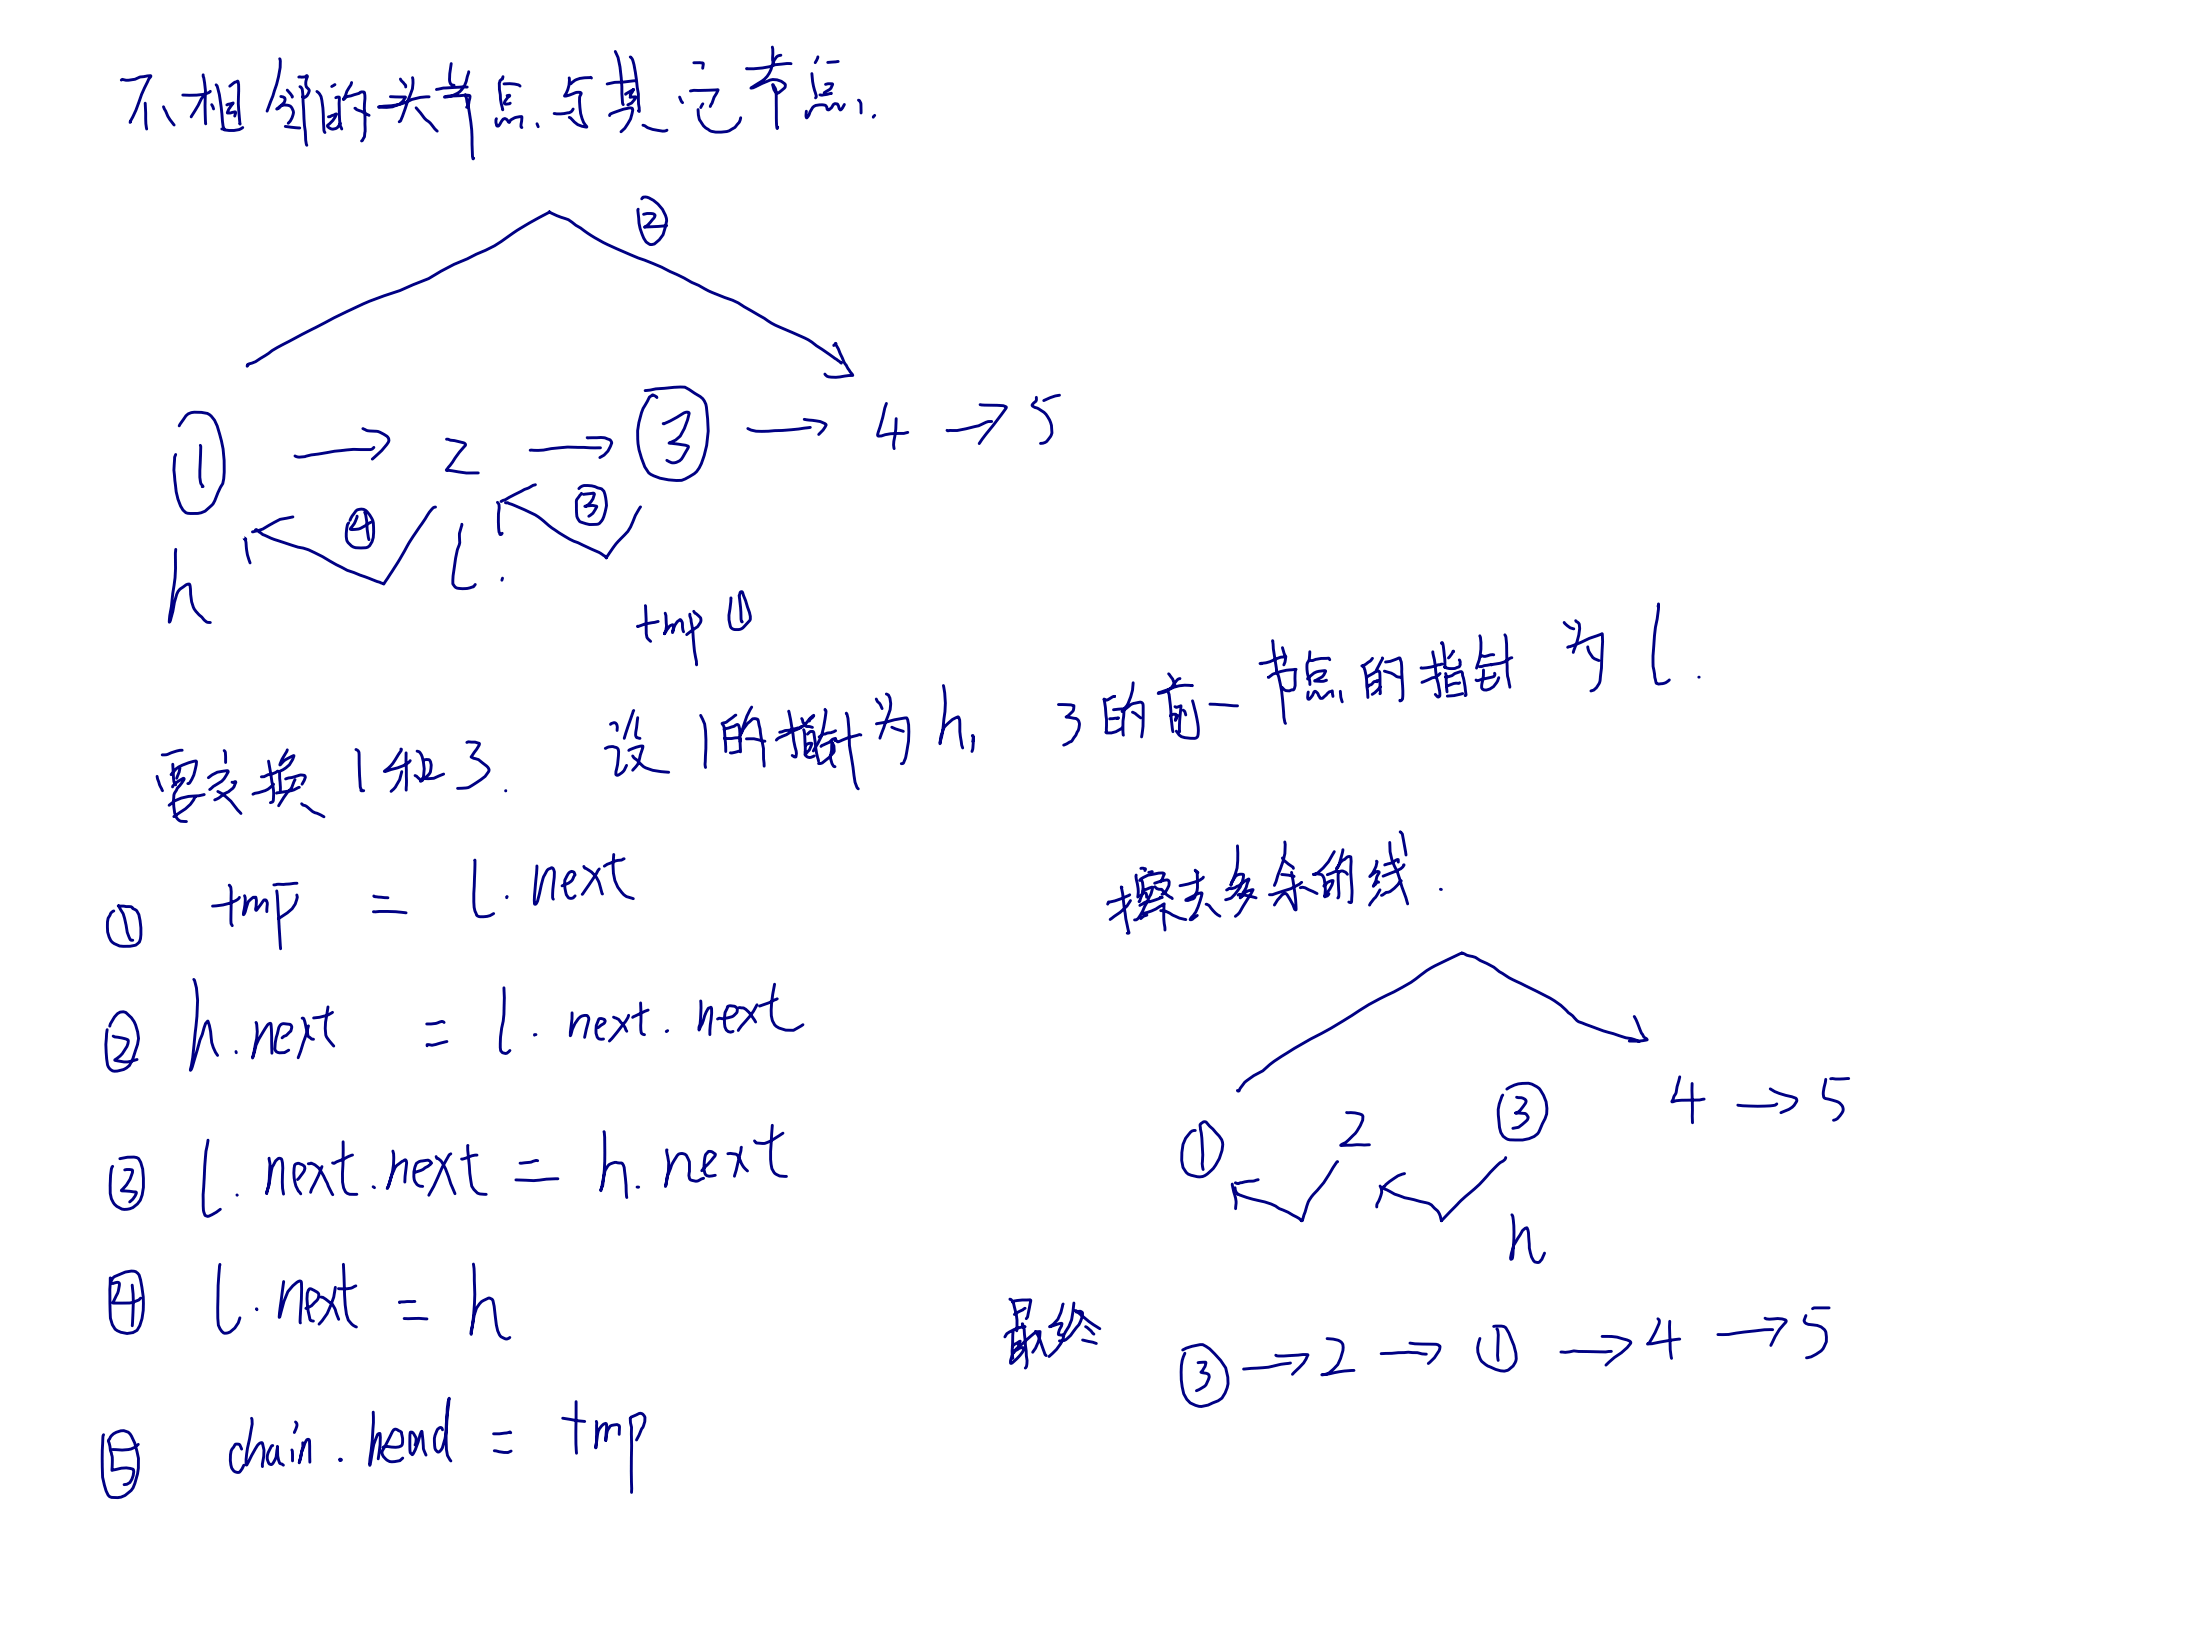 不相邻的头节点与其它节点.
②
① → 2 → ③ → 4 → 5
④ ③
h l.
tmp ①
要交换 1 和 3. 设 1 的指针为 h, 3 的前一节点的指针 为 l.
① tmp = l.next
② h.next = l.next.next
③ l.next.next = h.next
④ l.next = h
⑤ chain.head = tmp
擦去多余的线.
① 2 ③ 4 → 5
h
最终 ③ → 2 → ① → 4 → 5